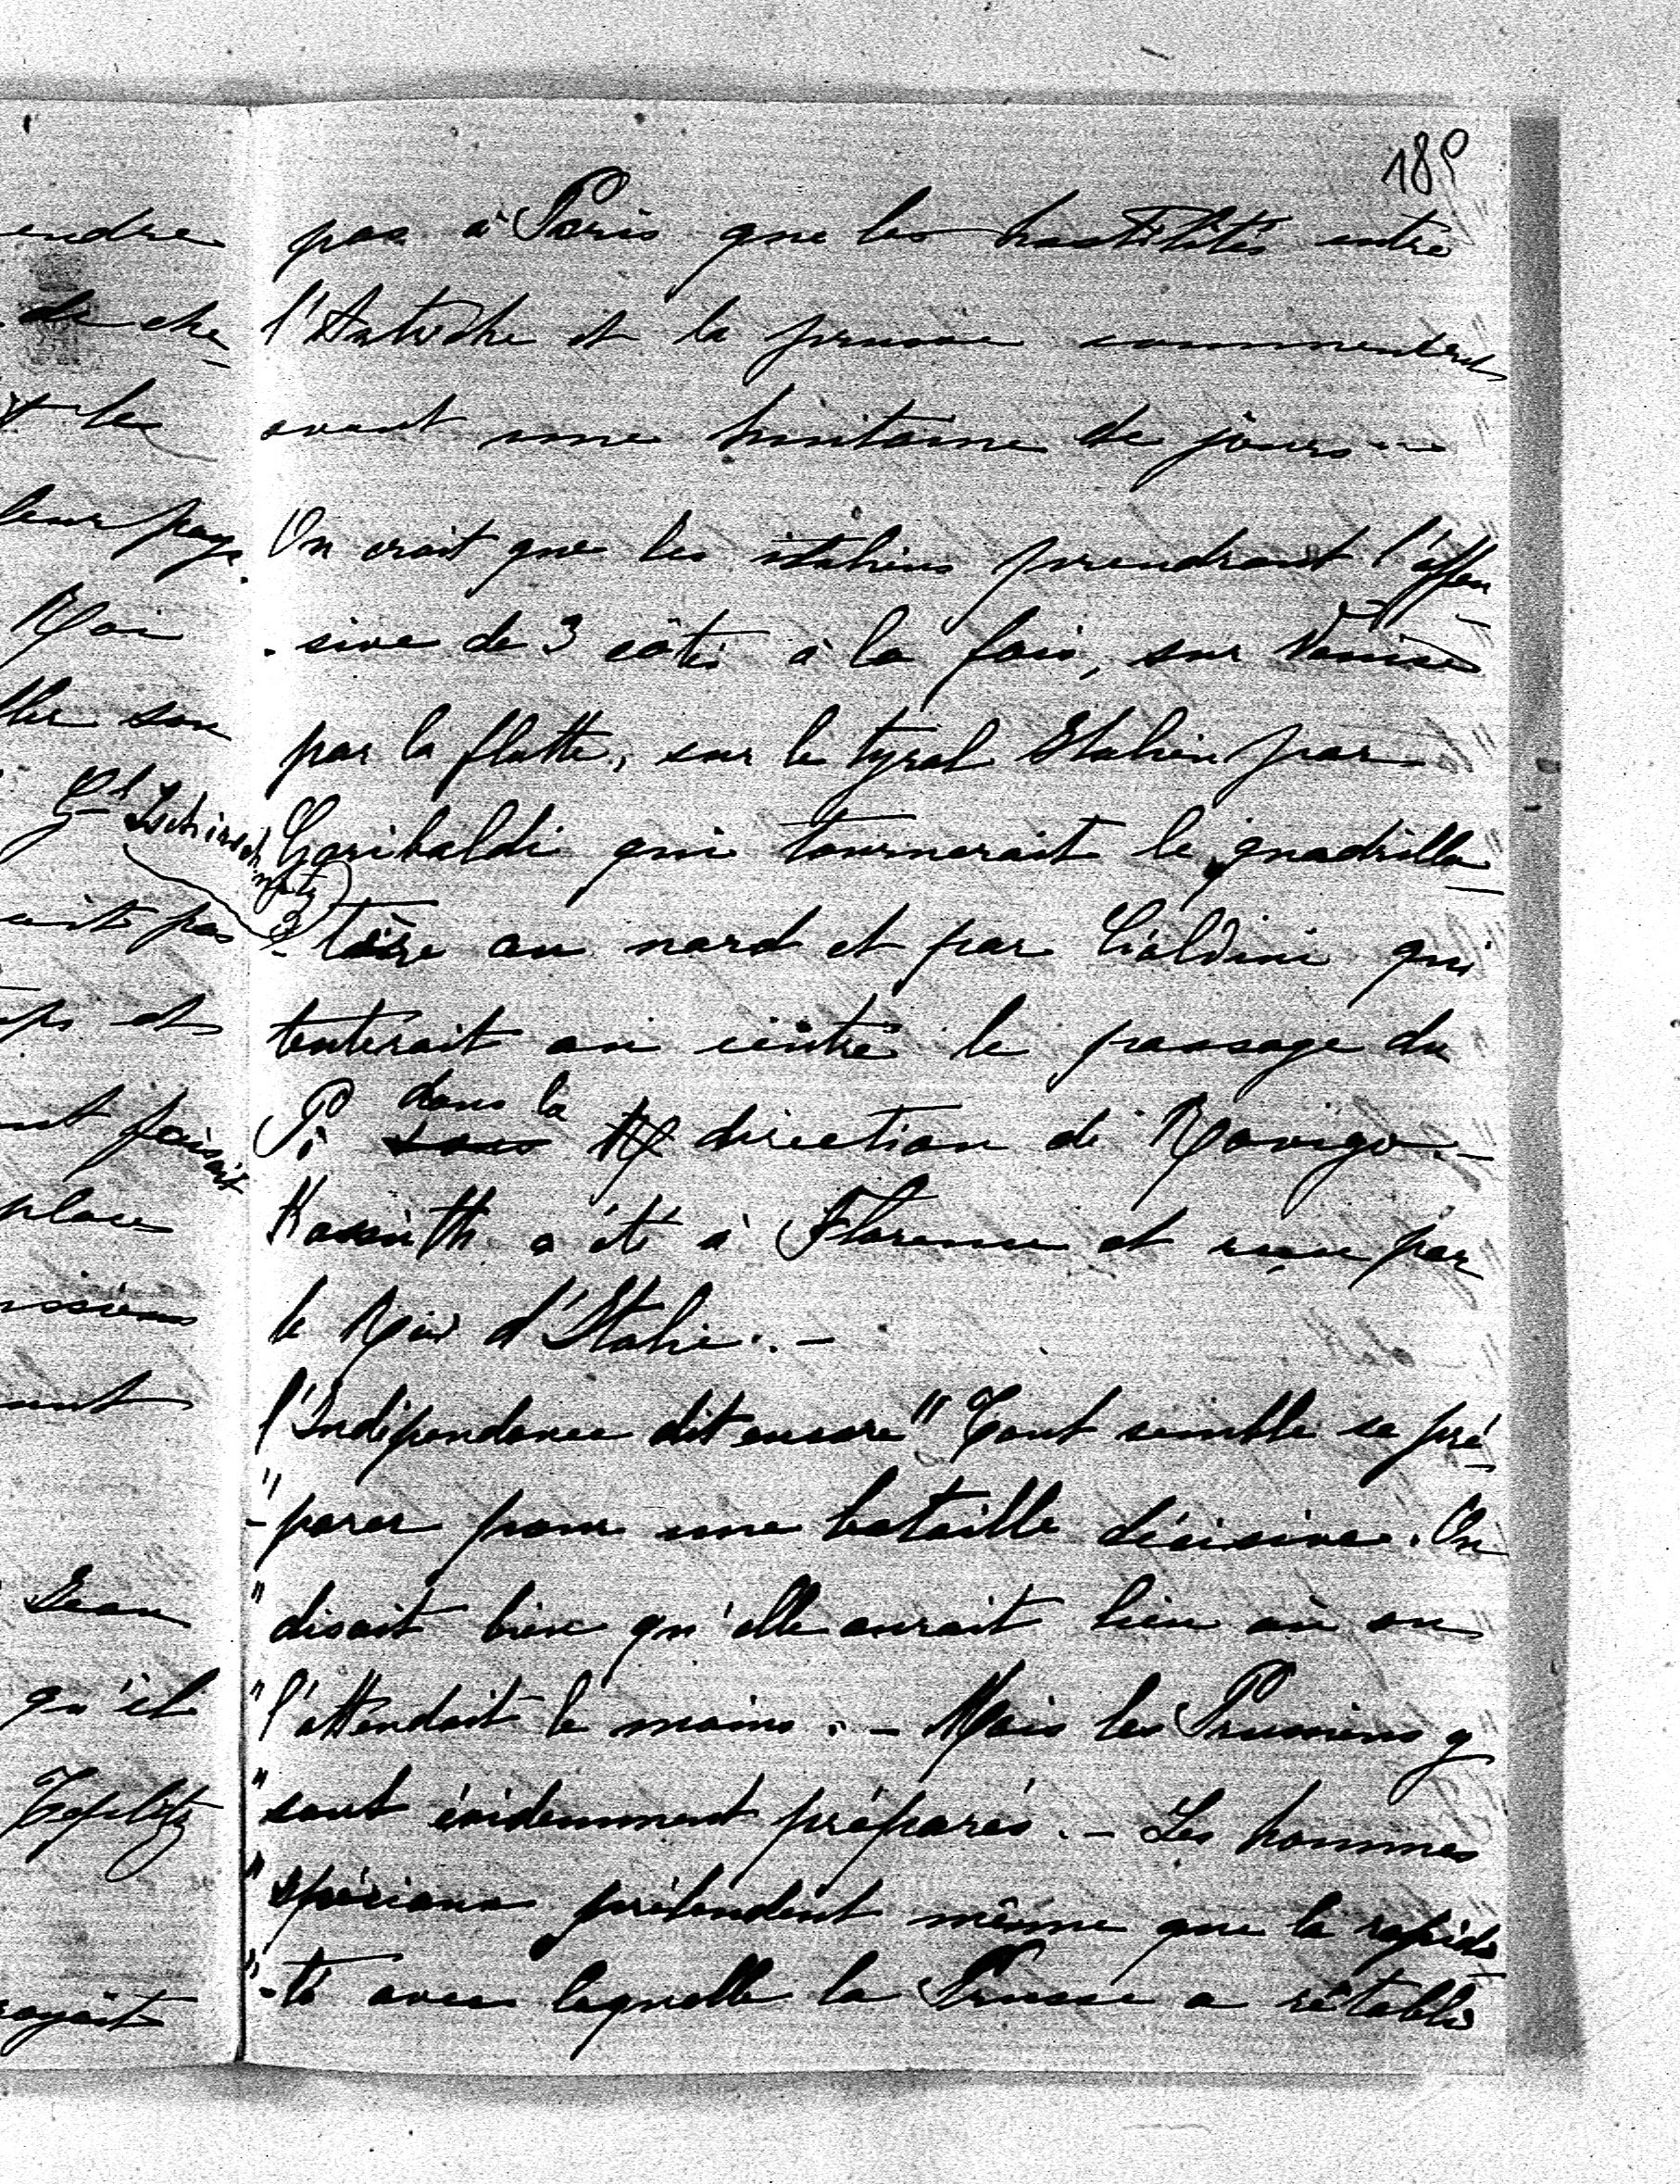 189
pas à Paris que les hostilités entre
l'Autriche et la prusse commencent
avant une huitaine de jours ---
On croit que les italiens prendront l'offen
- sive de 3 côtés à la fois, sur Venise
par la flotte, sur le tyrol Italien par
Garibaldi qui tournerait le quadrilla-
- tère au nord et par Cialdini qui
tenterait au centre le passage du
Pô dans la direction de Rovigo.-
Kossuth a été à Florence et reçu par
le Roi d'Italie.-
l'Indépendance dit encore " Tout semble se pré-
"- parer pour une bataille décisive. On
" disait bien qu'elle aurait lieu où on
" l'attendait le moins. - Mais les Prussiens y
" sont évidemment préparés. - Les hommes
" spéciaux prétendent même que la rapidi-
"- té avec laquelle la Prusse a rétabli
endre
de che-
les
leur pays
Roi
son
Gal
pas
et
faisait
place
Jean
qu'il
Toeplitz